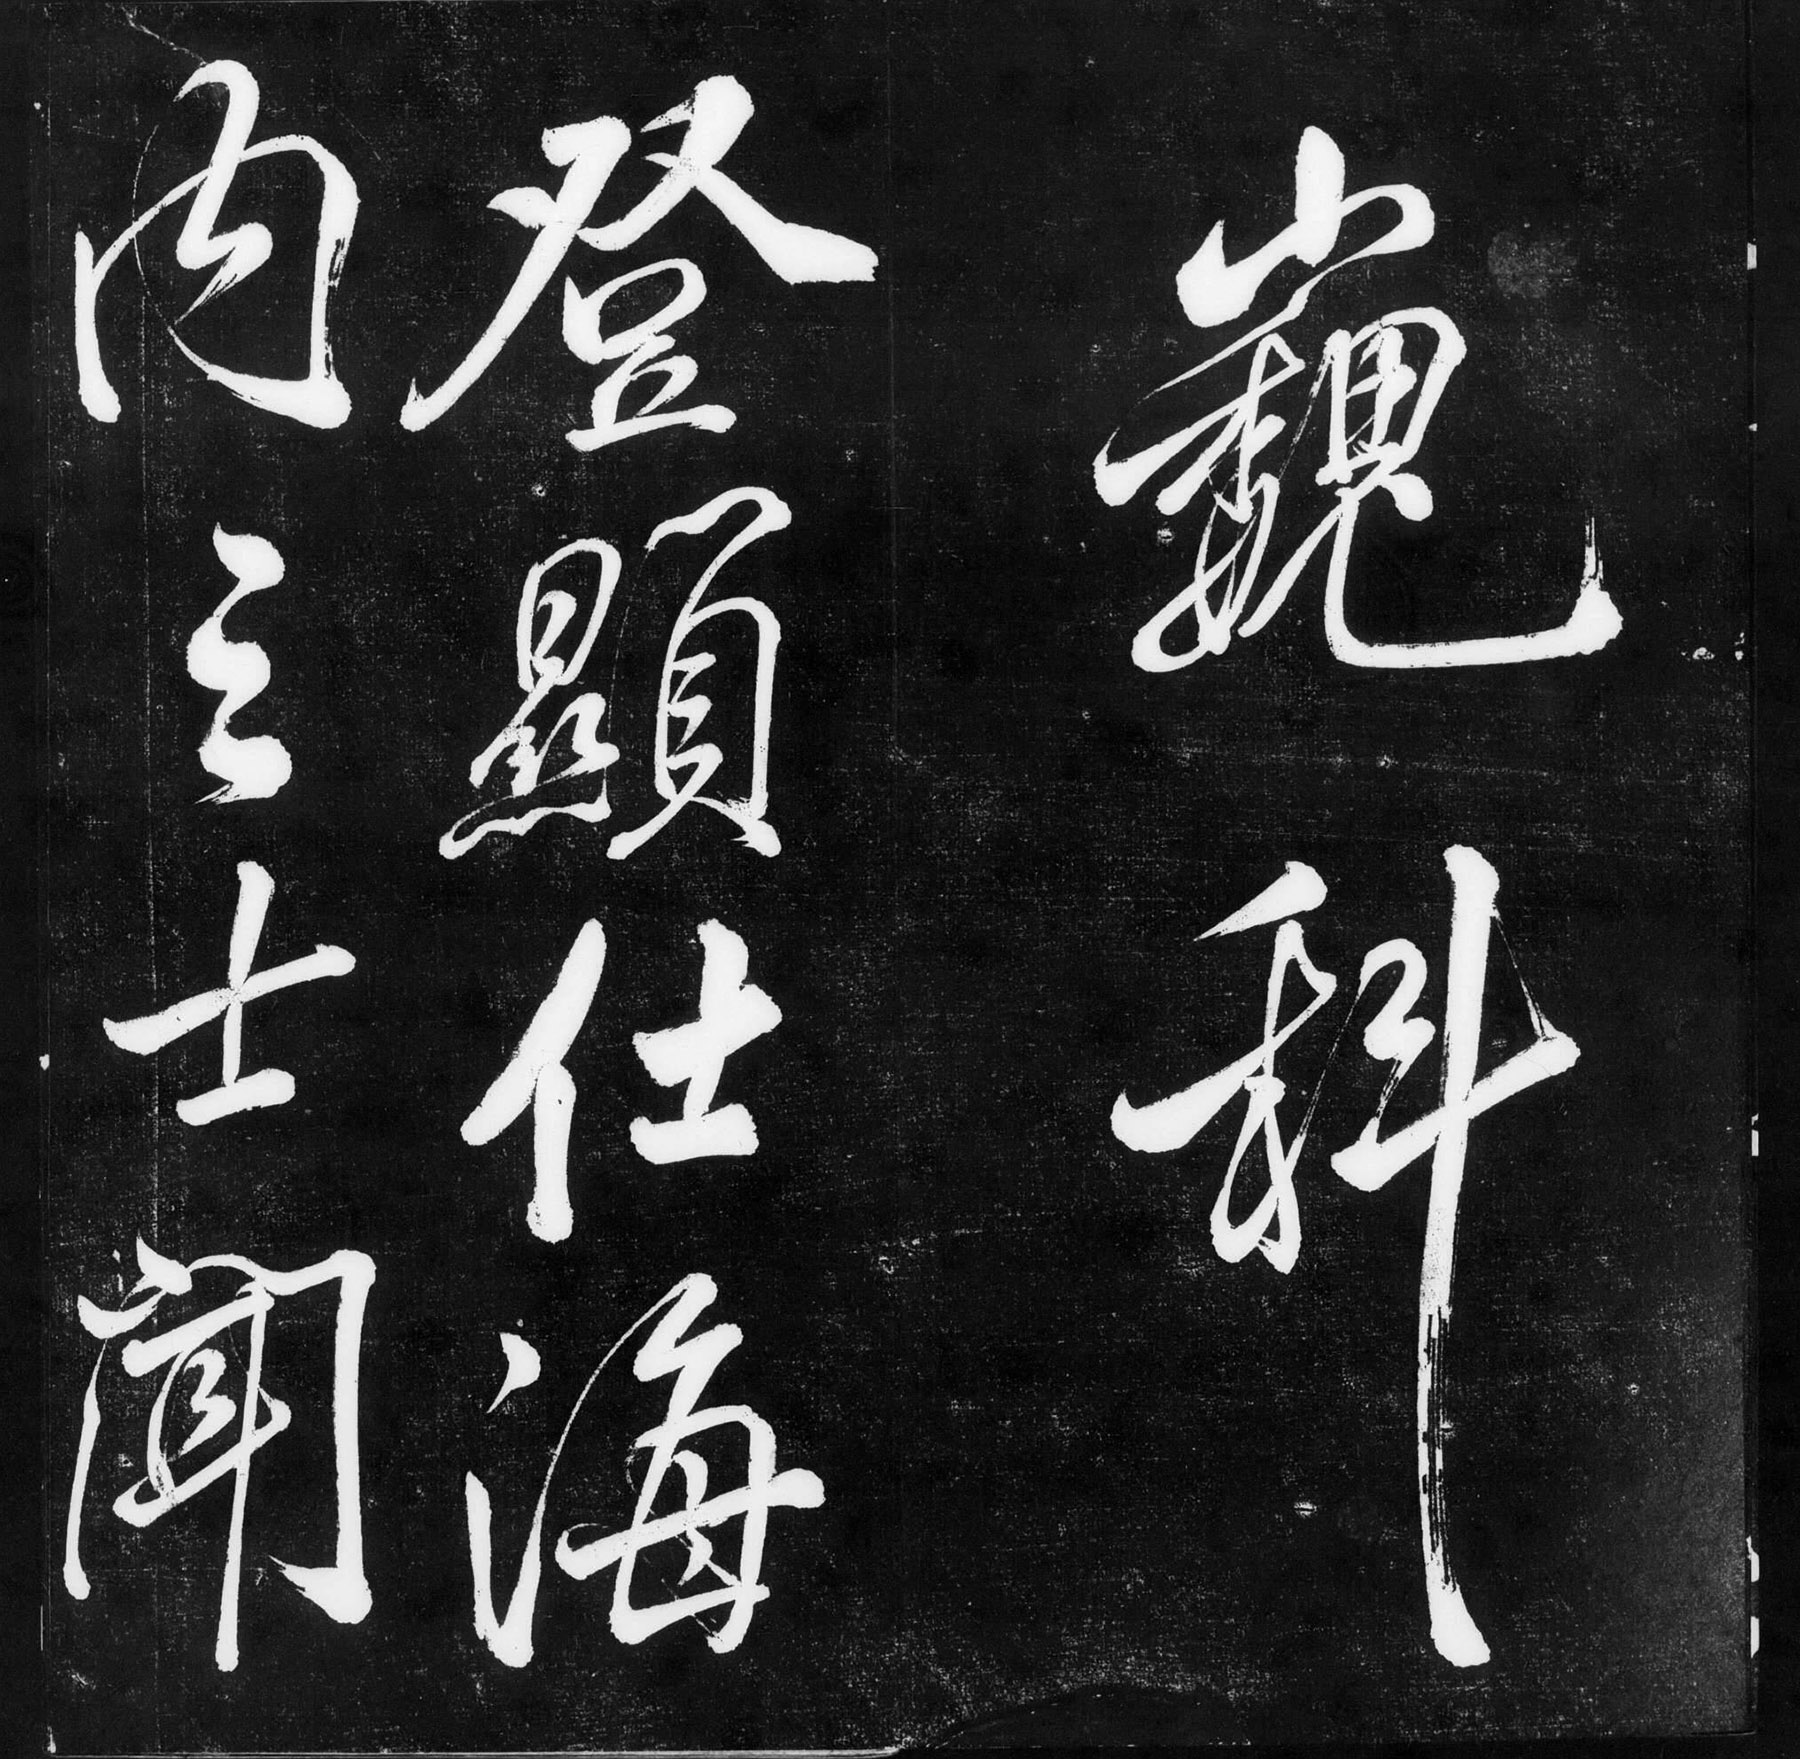 巍科
登顯仕海
内之士聞